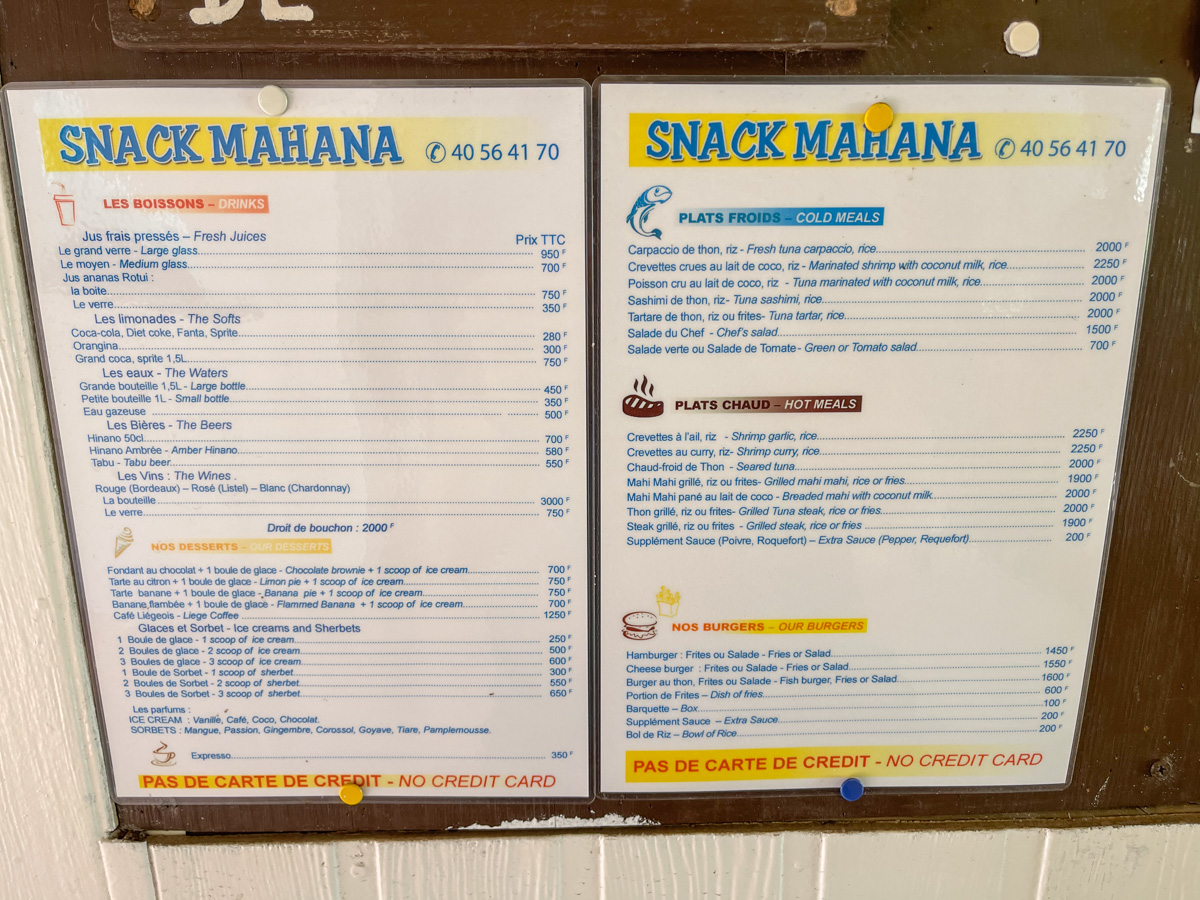 SNACK MAHANA ✆ 40 56 41 70
LES BOISSONS – DRINKS
Jus frais pressés – Fresh Juices Prix TTC
Le grand verre - Large glass 950 F
Le moyen - Medium glass 700 F
Jus ananas Rotui :
la boite 750 F
Le verre 350 F
Les limonades - The Softs
Coca-cola, Diet coke, Fanta, Sprite 280 F
Orangina 300 F
Grand coca, sprite 1,5L 750 F
Les eaux - The Waters
Grande bouteille 1,5L - Large bottle 450 F
Petite bouteille 1L - Small bottle 350 F
Eau gazeuse 500 F
Les Bières - The Beers
Hinano 50cl 700 F
Hinano Ambrée - Amber Hinano 580 F
Tabu - Tabu beer 550 F
Les Vins : The Wines .
Rouge (Bordeaux) – Rosé (Listel) – Blanc (Chardonnay)
La bouteille 3000 F
Le verre 750 F
Droit de bouchon : 2000 F
NOS DESSERTS – OUR DESSERTS
Fondant au chocolat + 1 boule de glace - Chocolate brownie + 1 scoop of ice cream 700 F
Tarte au citron + 1 boule de glace - Limon pie + 1 scoop of ice cream 750 F
Tarte banane + 1 boule de glace - Banana pie + 1 scoop of ice cream 750 F
Banane flambée + 1 boule de glace - Flammed Banana + 1 scoop of ice cream 700 F
Café Liégeois - Liege Coffee 1250 F
Glaces et Sorbet - Ice creams and Sherbets
1 Boule de glace - 1 scoop of ice cream 250 F
2 Boules de glace - 2 scoop of ice cream 500 F
3 Boules de glace - 3 scoop of ice cream 600 F
1 Boule de Sorbet - 1 scoop of sherbet 300 F
2 Boules de Sorbet - 2 scoop of sherbet 550 F
3 Boules de Sorbet - 3 scoop of sherbet 650 F
Les parfums :
ICE CREAM : Vanille, Café, Coco, Chocolat.
SORBETS : Mangue, Passion, Gingembre, Corossol, Goyave, Tiare, Pamplemousse.
Expresso 350 F
PAS DE CARTE DE CREDIT - NO CREDIT CARD
SNACK MAHANA ✆ 40 56 41 70
PLATS FROIDS – COLD MEALS
Carpaccio de thon, riz - Fresh tuna carpaccio, rice 2000 F
Crevettes crues au lait de coco, riz - Marinated shrimp with coconut milk, rice 2250 F
Poisson cru au lait de coco, riz - Tuna marinated with coconut milk, rice 2000 F
Sashimi de thon, riz- Tuna sashimi, rice 2000 F
Tartare de thon, riz ou frites- Tuna tartar, rice 2000 F
Salade du Chef - Chef's salad 1500 F
Salade verte ou Salade de Tomate - Green or Tomato salad 700 F
PLATS CHAUD – HOT MEALS
Crevettes à l'ail, riz - Shrimp garlic, rice 2250 F
Crevettes au curry, riz- Shrimp curry, rice 2250 F
Chaud-froid de Thon - Seared tuna 2000 F
Mahi Mahi grillé, riz ou frites- Grilled mahi mahi, rice or fries 1900 F
Mahi Mahi pané au lait de coco - Breaded mahi with coconut milk 2000 F
Thon grillé, riz ou frites- Grilled Tuna steak, rice or fries 2000 F
Steak grillé, riz ou frites - Grilled steak, rice or fries 1900 F
Supplément Sauce (Poivre, Roquefort) – Extra Sauce (Pepper, Requefort) 200 F
NOS BURGERS – OUR BURGERS
Hamburger : Frites ou Salade - Fries or Salad 1450 F
Cheese burger : Frites ou Salade - Fries or Salad 1550 F
Burger au thon, Frites ou Salade - Fish burger, Fries or Salad 1600 F
Portion de Frites – Dish of fries 600 F
Barquette – Box 100 F
Supplément Sauce – Extra Sauce 200 F
Bol de Riz – Bowl of Rice 200 F
PAS DE CARTE DE CREDIT - NO CREDIT CARD